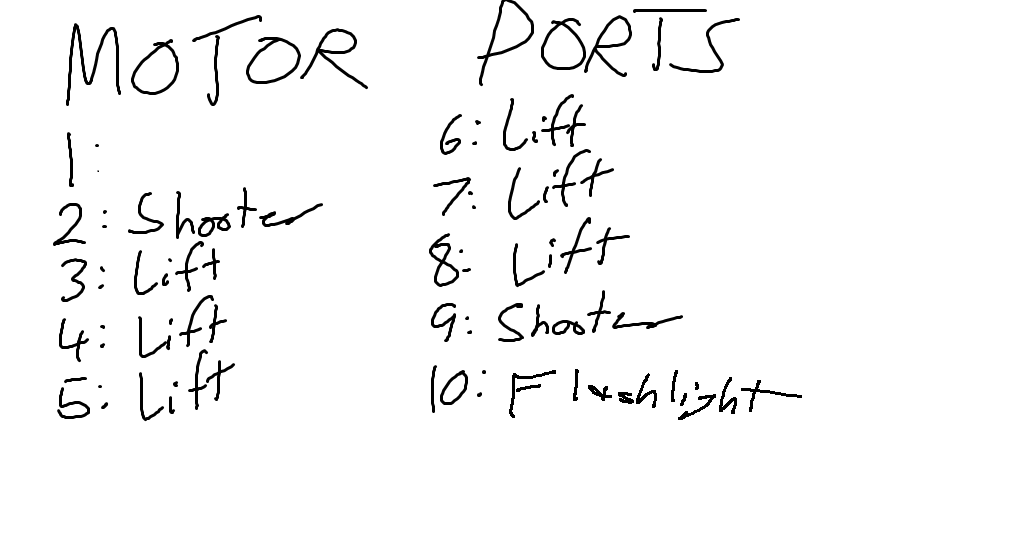 MOTOR PORTS
1:
2: Shooter
3: Lift
4: Lift
5: Lift
6: Lift
7: Lift
8: Lift
9: Shooter
10: Flashlight